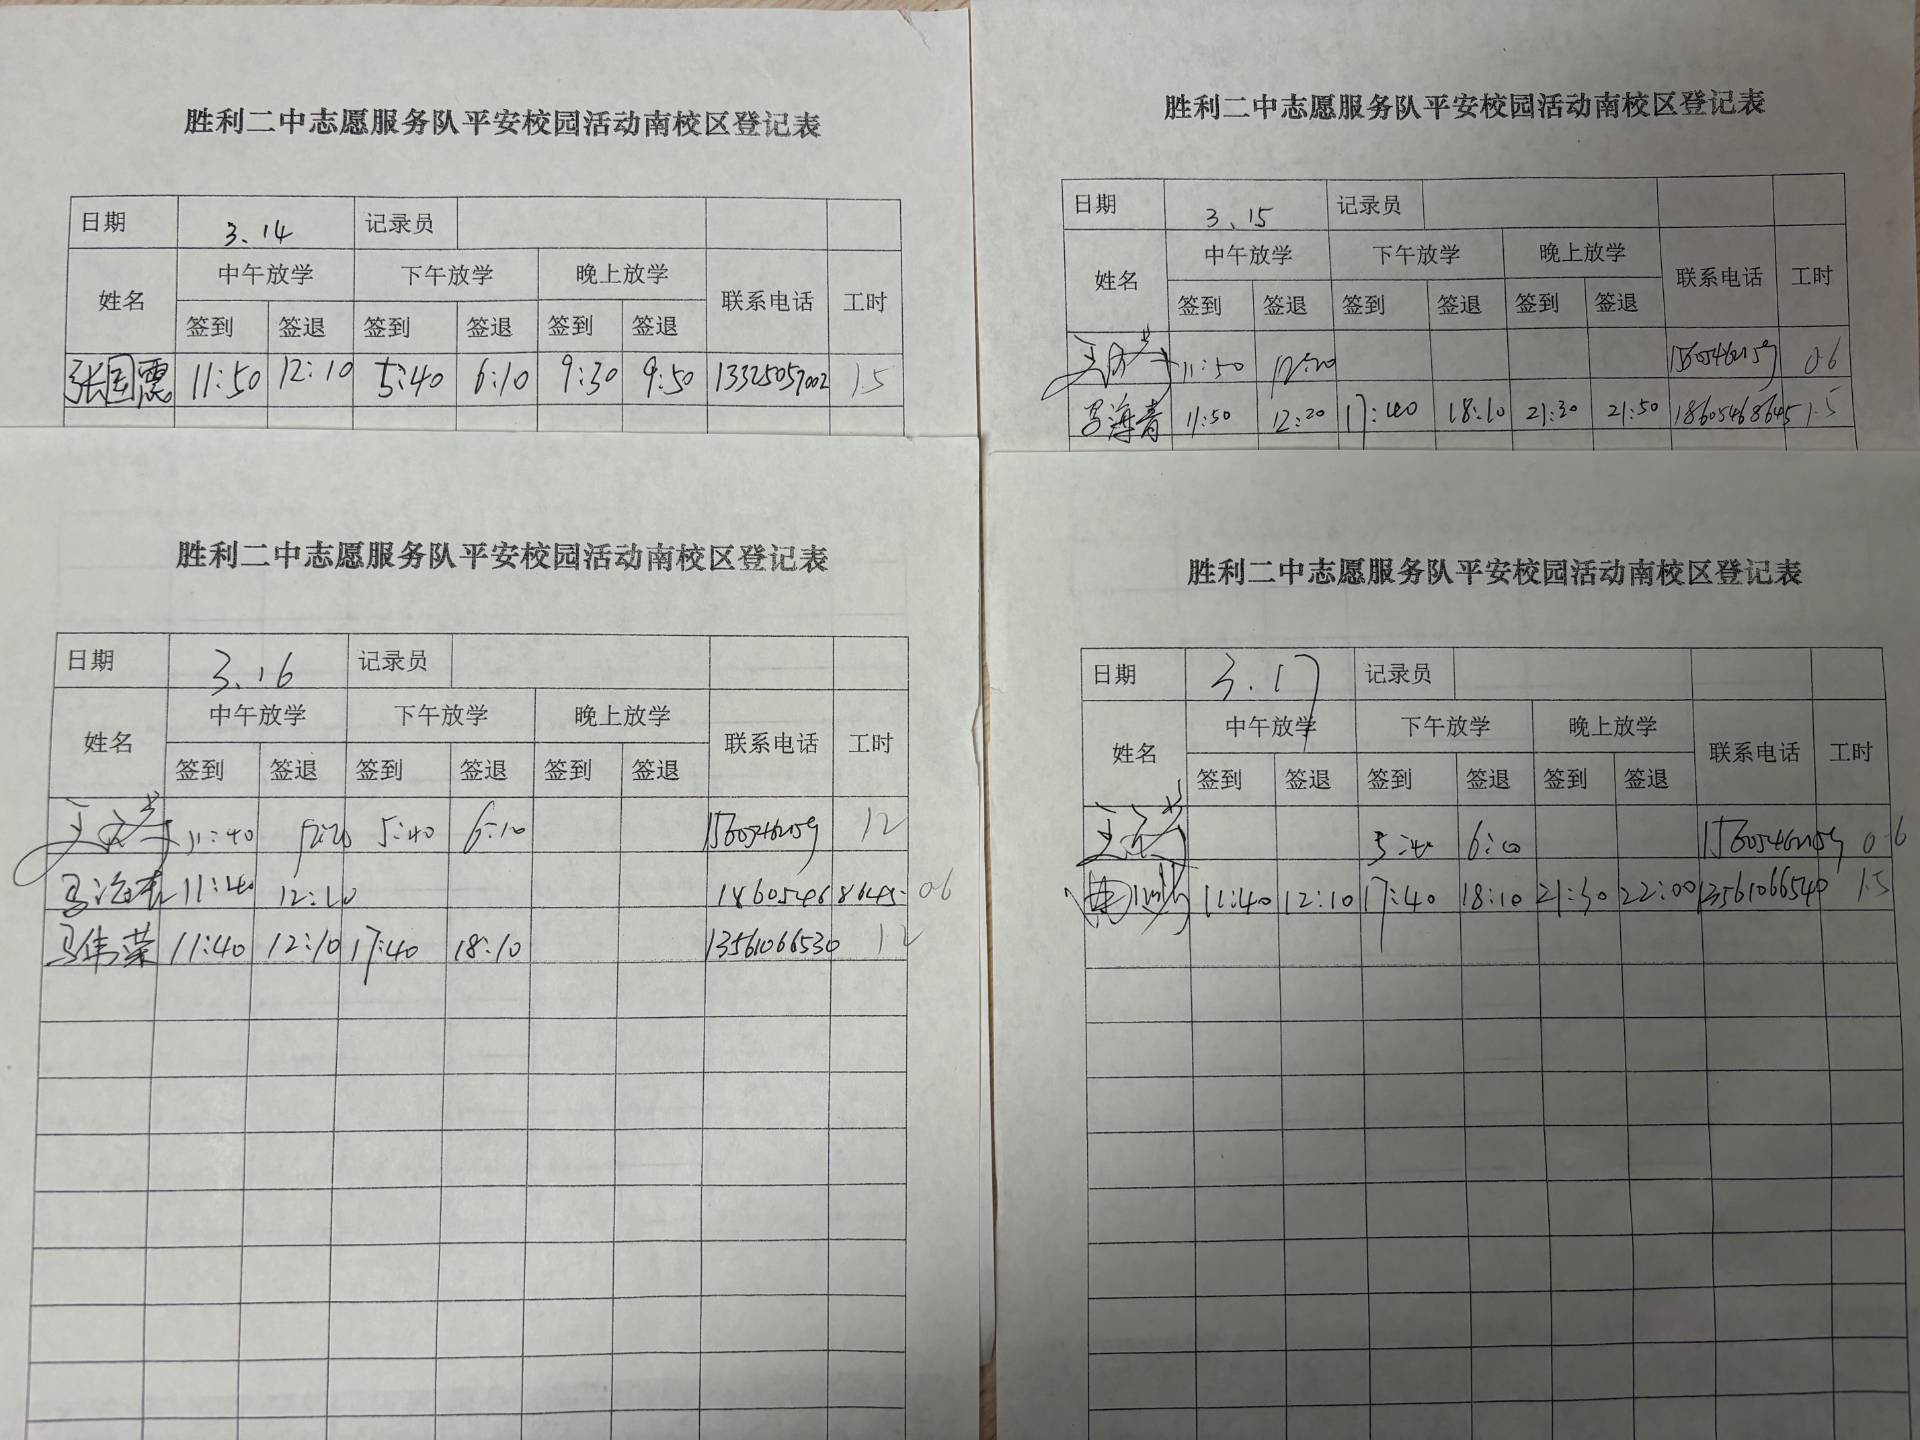 胜利二中志愿服务队平安校园活动南校区登记表
日期 3.14 记录员
姓名 中午放学 下午放学 晚上放学 联系电话 工时
签到 签退 签到 签退 签到 签退
张国震 11:50 12:10 5:40 6:10 9:30 9:50 13325057002 1.5
胜利二中志愿服务队平安校园活动南校区登记表
日期 3.15 记录员
姓名 中午放学 下午放学 晚上放学 联系电话 工时
签到 签退 签到 签退 签到 签退
11:50 12:20 0.6
马海青 11:50 12:20 17:40 18:10 21:30 21:50 18605468645 1.5
胜利二中志愿服务队平安校园活动南校区登记表
日期 3.16 记录员
姓名 中午放学 下午放学 晚上放学 联系电话 工时
签到 签退 签到 签退 签到 签退
11:40 12:20 5:40 6:10 12
马海青 11:40 12:10 18605468645 0.6
马伟荣 11:40 12:10 17:40 18:10 13561066530 12
胜利二中志愿服务队平安校园活动南校区登记表
日期 3.17 记录员
姓名 中午放学 下午放学 晚上放学 联系电话 工时
签到 签退 签到 签退 签到 签退
5:40 6:10 0.6
11:40 12:10 17:40 18:10 21:30 22:00 13561066540 1.5